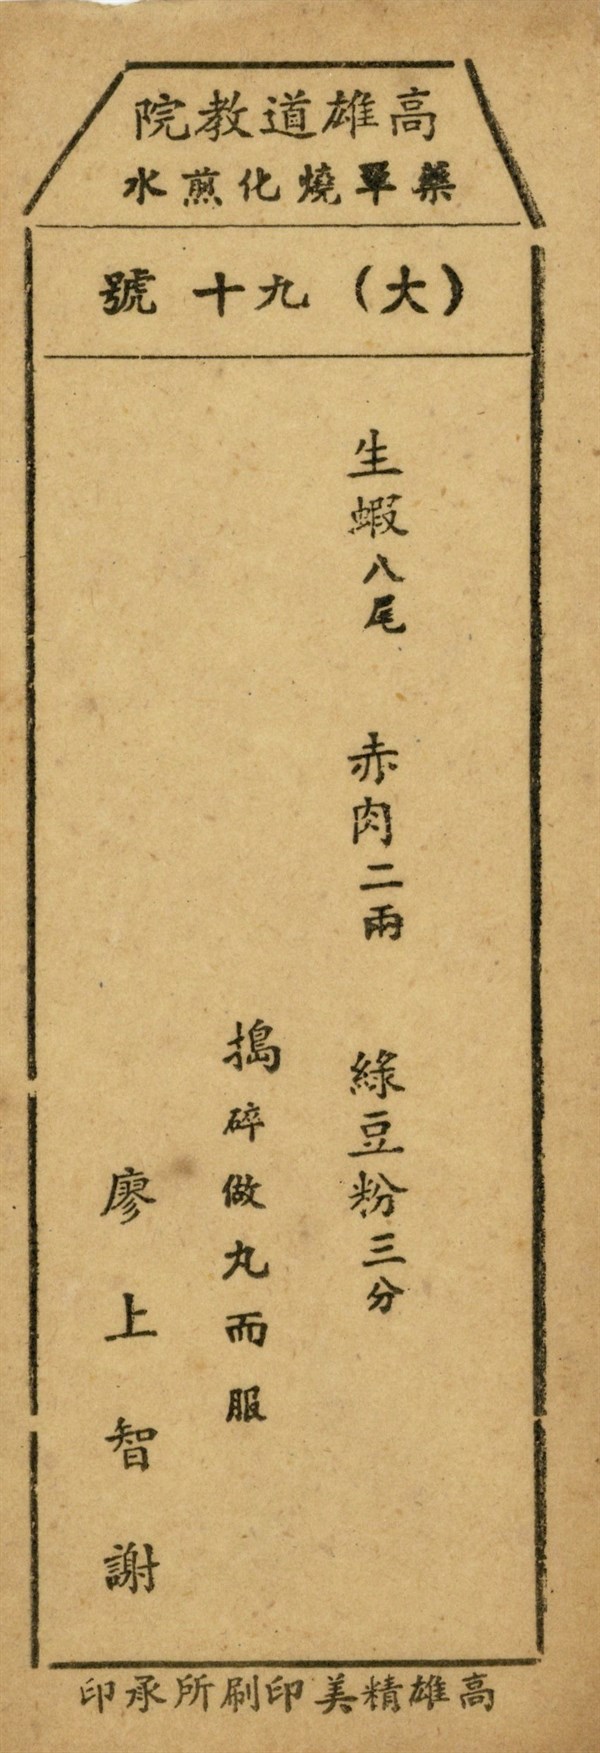 高雄道教院
藥單燒化煎水
(大)九十號
生蝦八尾 赤肉二兩 綠豆粉三分
搗碎做丸而服
廖上智謝
高雄精美印刷所承印